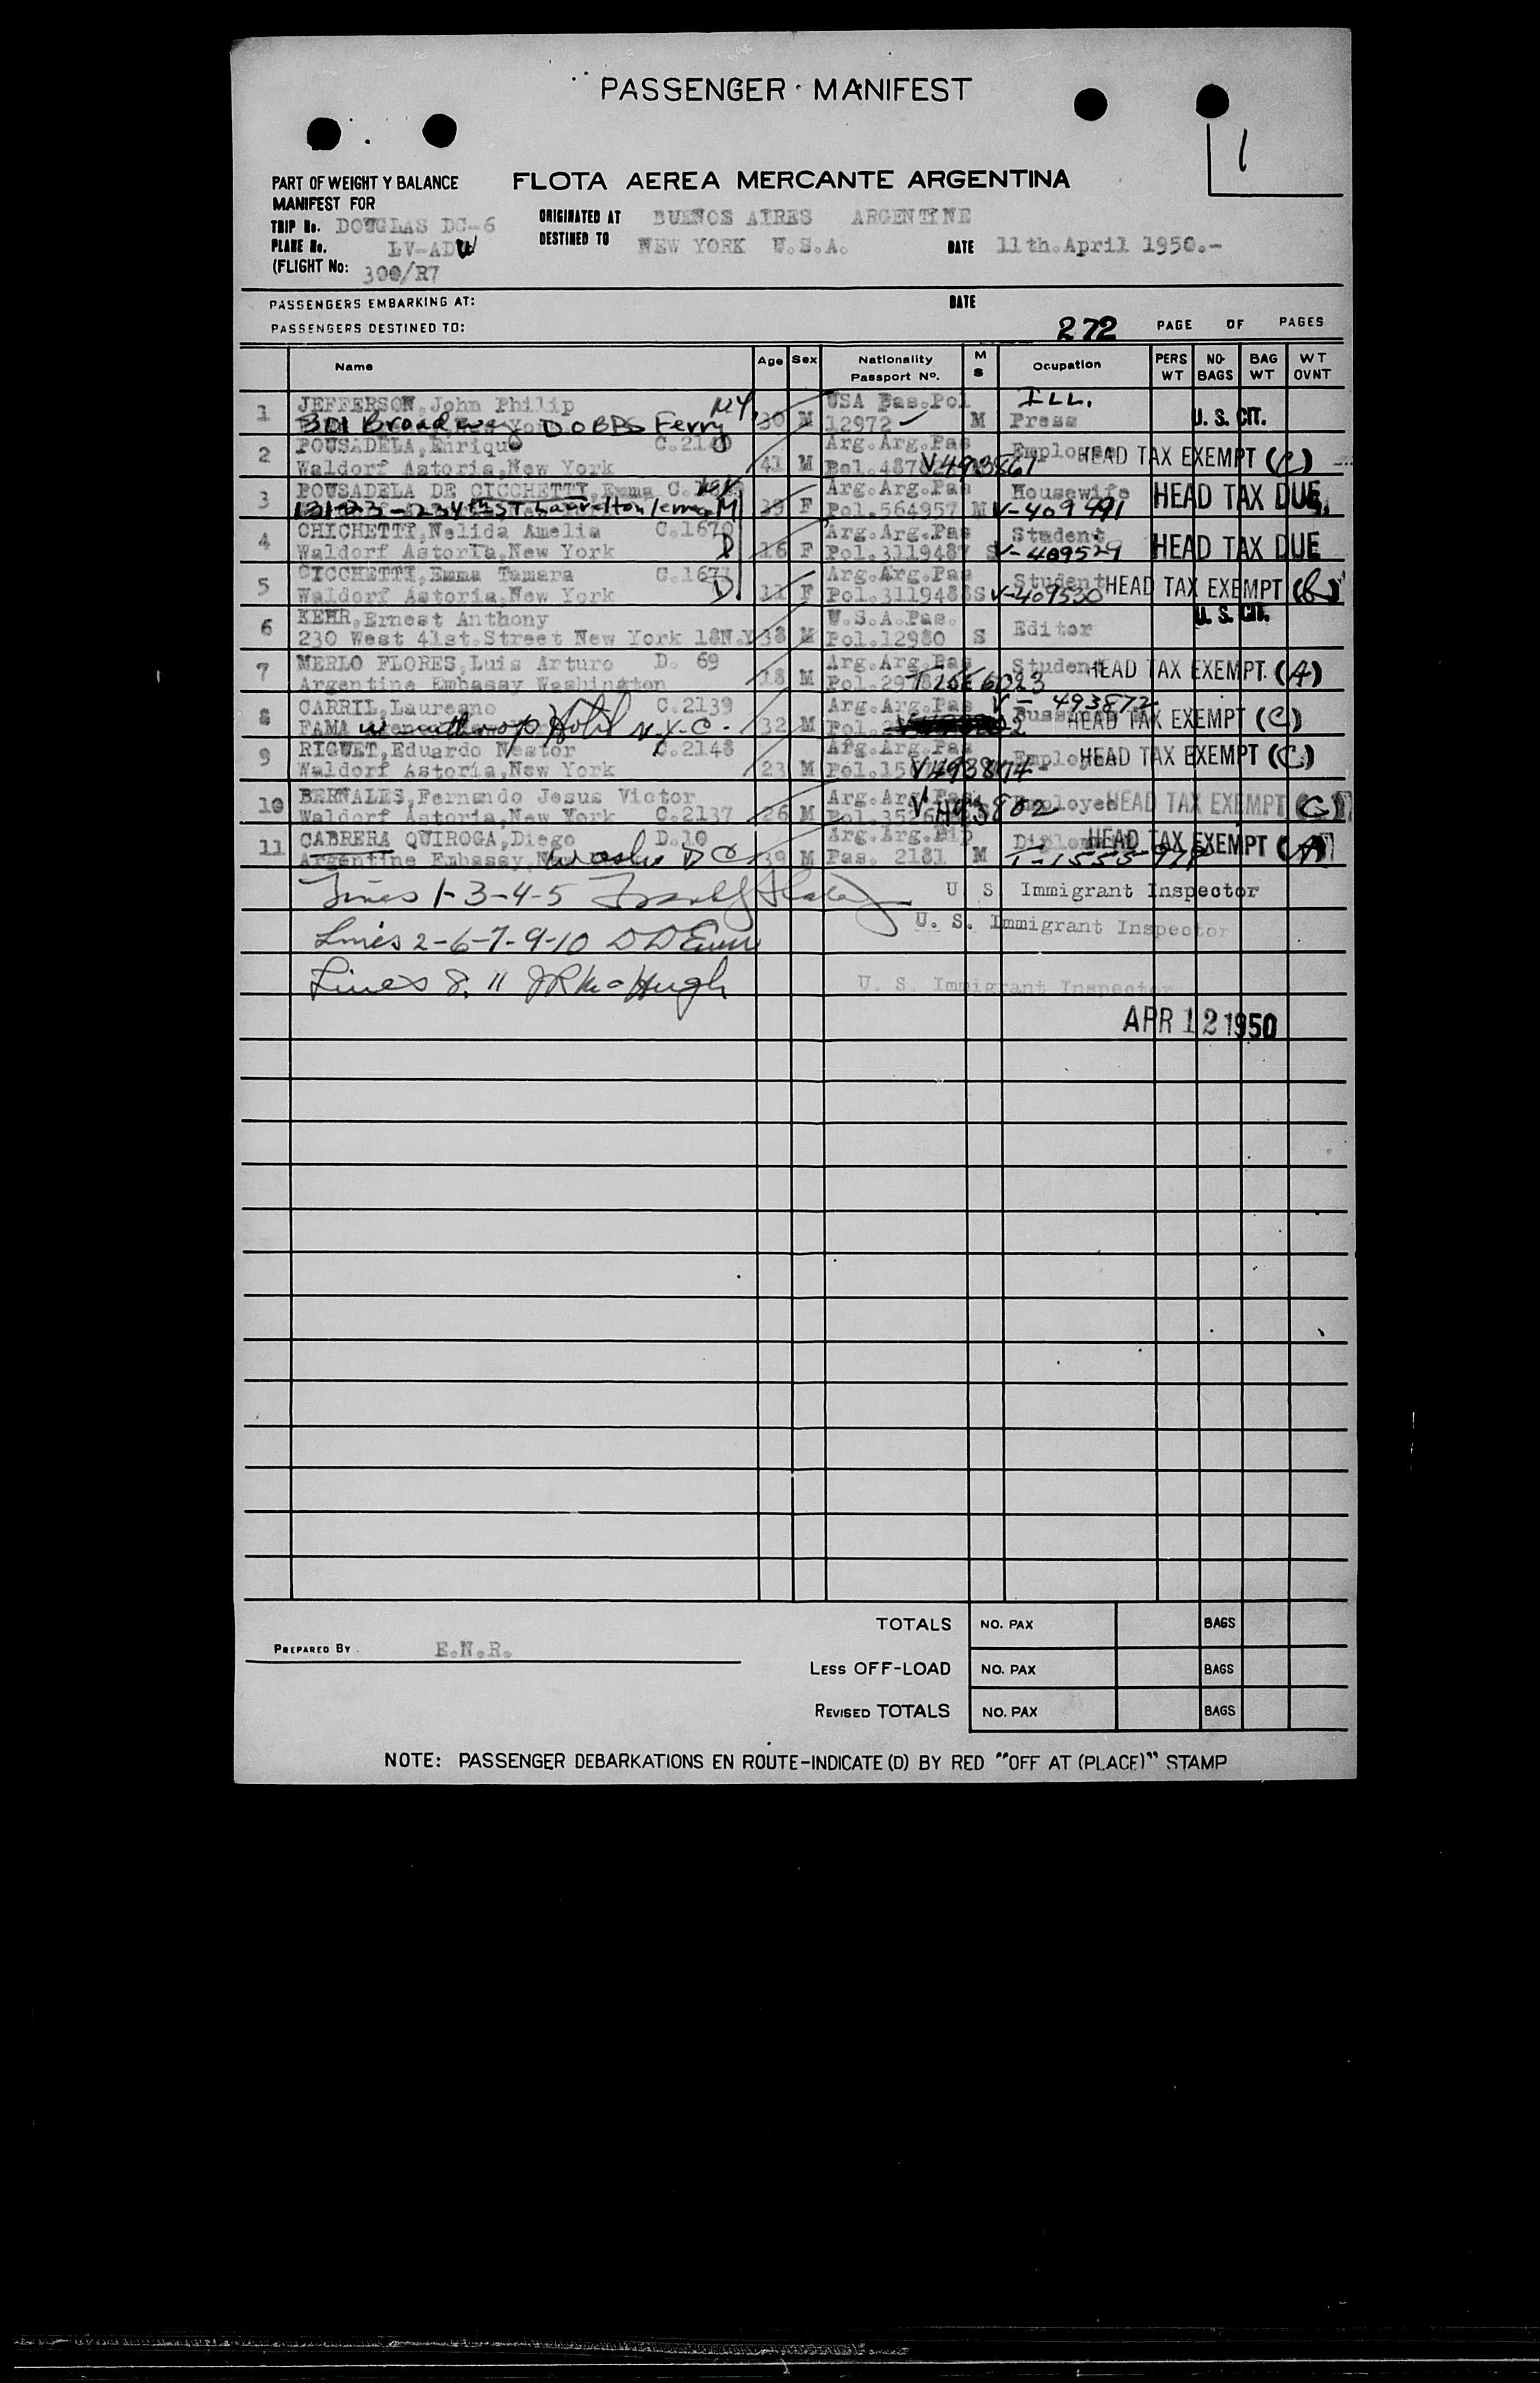 PASSENGER MANIFEST
1
PART OF WEIGHT Y BALANCE
MANIFEST FOR
FLOTA AEREA MERCANTE ARGENTINA
TRIP No. DOUGLAS DC-6
ORIGINATED AT BUENOS AIRES ARGENTINE
PLANE No. LV-ADW
DESTINED TO NEW YORK U.S.A. DATE 11th.April 1950.-
(FLIGHT No: 300/R7
PASSENGERS EMBARKING AT: DATE
PASSENGERS DESTINED TO: 272 PAGE OF PAGES
Name Age Sex Nationality Passport Nº. M S Ocupation PERS WT NO- BAGS BAG WT WT OVNT
1 JEFFERSON, John Philip N.Y. 30 M USA Pas.Pol ILL.
301 Broadway DOBBS Ferry 12972 M Press U. S. CIT.
2 POUSADELA, Enrique C.2140 41 M Arg.Arg.Pas Employee HEAD TAX EXEMPT (C)
Waldorf Astoria, New York Pol. V493861
3 POUSADELA DE CICCHETTI, Emma C. 39 F Arg.Arg.Pas Housewife HEAD TAX DUE
131-23-234th ST. Laurelton Pol.564957 M V-409491
4 CHICHETTI, Nelida Amelia C.1670 16 F Arg.Arg.Pas Student HEAD TAX DUE
Waldorf Astoria, New York D Pol.3119487 S V-409529
5 CICCHETTI, Emma Tamara C.1671 11 F Arg.Arg.Pas Student HEAD TAX EXEMPT
Waldorf Astoria, New York D Pol.3119488 S V-409530
6 KEHR, Ernest Anthony 38 M U.S.A.Pas. U. S. CIT.
230 West 41st.Street New York 18N.Y Pol.12980 S Editor
7 MERLO FLORES, Luis Arturo D. 69 18 M Arg.Arg.Pas Student HEAD TAX EXEMPT. (A)
Argentine Embassy Washington Pol.
8 CARRIL, Laureano C.2139 32 M Arg.Arg.Pas V-493872
FAMA Hotel N.Y.C. Pol. HEAD TAX EXEMPT (C)
9 RIGUET, Eduardo Nestor C.2148 23 M Arg.Arg.Pas Employee HEAD TAX EXEMPT (C)
Waldorf Astoria, New York Pol. V493874
10 BERNALES, Fernando Jesus Victor 26 M Arg.Arg.Pas Employee HEAD TAX EXEMPT (C)
Waldorf Astoria, New York C.2137 Pol. V493802
11 CABRERA QUIROGA, Diego D.10 39 M Arg.Arg.Dip HEAD TAX EXEMPT (A)
Argentine Embassy, Wash D C Pas. 2181 M
Lines 1-3-4-5 U S Immigrant Inspector
U. S. Immigrant Inspector
Lines 2-6-7-9-10
Lines 8, 11 J R McHugh U. S. Immigrant Inspector
APR 12 1950
TOTALS NO. PAX BAGS
PREPARED BY E.N.R.
LESS OFF-LOAD NO. PAX BAGS
REVISED TOTALS NO. PAX BAGS
NOTE: PASSENGER DEBARKATIONS EN ROUTE-INDICATE (D) BY RED "OFF AT (PLACE)" STAMP